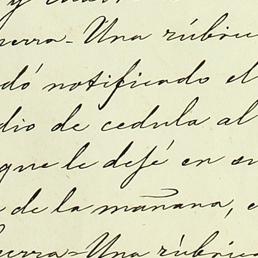 erra - Una rúbric
dó notificado el
dio de cedula al
que le dejé en su
de la mañana, e
erra - Una rúbric